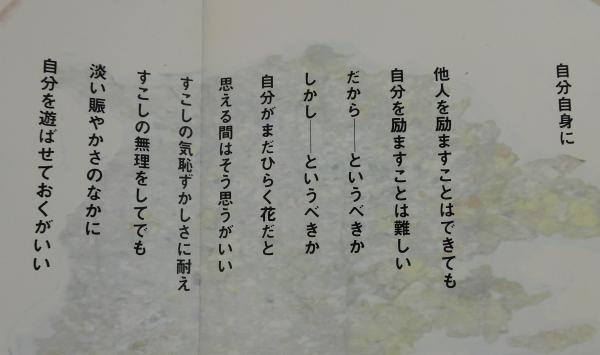 自分自身に
他人を励ますことはできても
自分を励ますことは難しい
だから――というべきか
しかし――というべきか
自分がまだひらく花だと
思える間はそう思うがいい
すこしの気恥ずかしさに耐え
すこしの無理をしてでも
淡い賑やかさのなかに
自分を遊ばせておくがいい